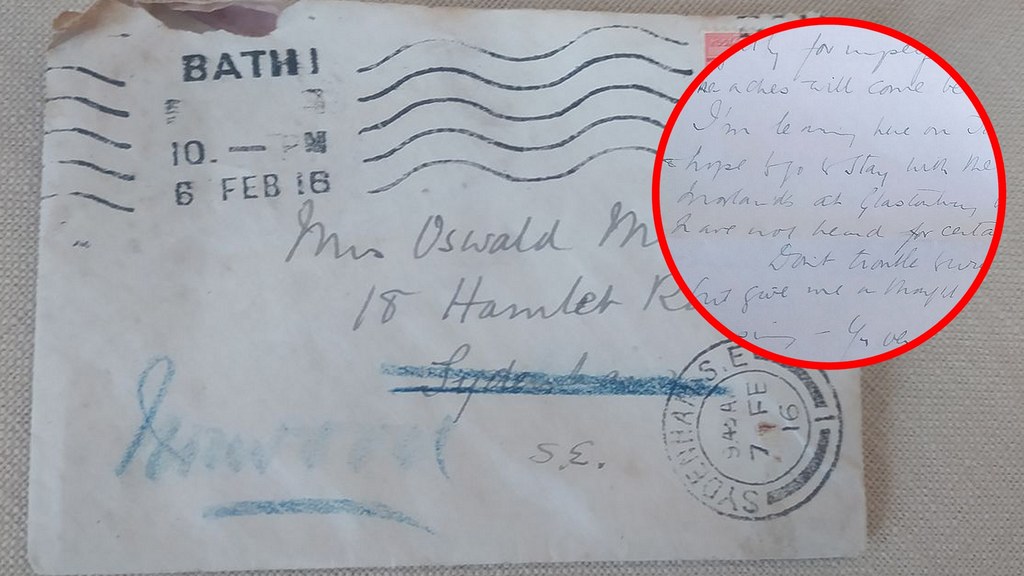 BATH 1
10. — PM
6 FEB 16
Mrs Oswald M
18 Hamlet R
Sydenham
Norwood
S.E.
SYDENHAM S.E.
945 A
7 FE
16
1
for
aches will come be
I'm leaving here on
hope to go & stay with the
at Glastonbury
have not heard for certa
Dont trouble
but give me a thought